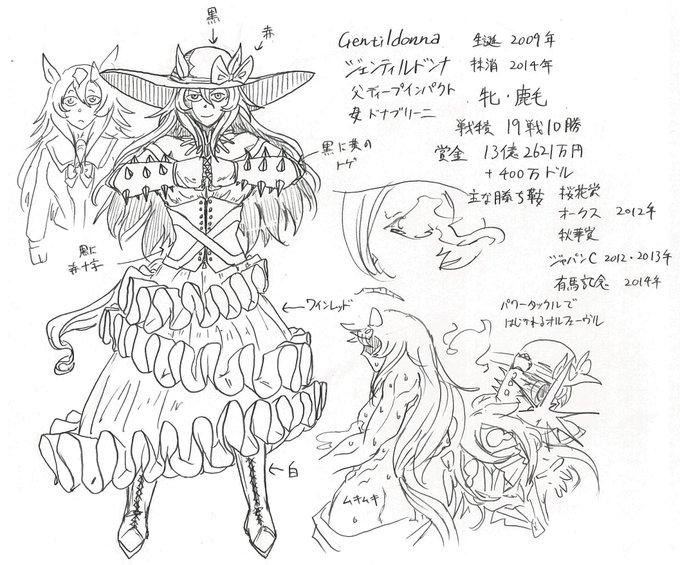 黒
赤
Gentildonna 生誕 2009年
ジェンティルドンナ 抹消 2014年
父 ディープインパクト
母 ドナブリーニ
牝・鹿毛
戦績 19戦10勝
賞金 13億2621万円
+400万ドル
主な勝ち鞍 桜花賞
オークス 2012年
秋華賞
ジャパンC 2012・2013年
有馬記念 2014年
トゲ
ワインレッド
白
パワータックルで
はじかれるオルフェーヴル
ムキムキ